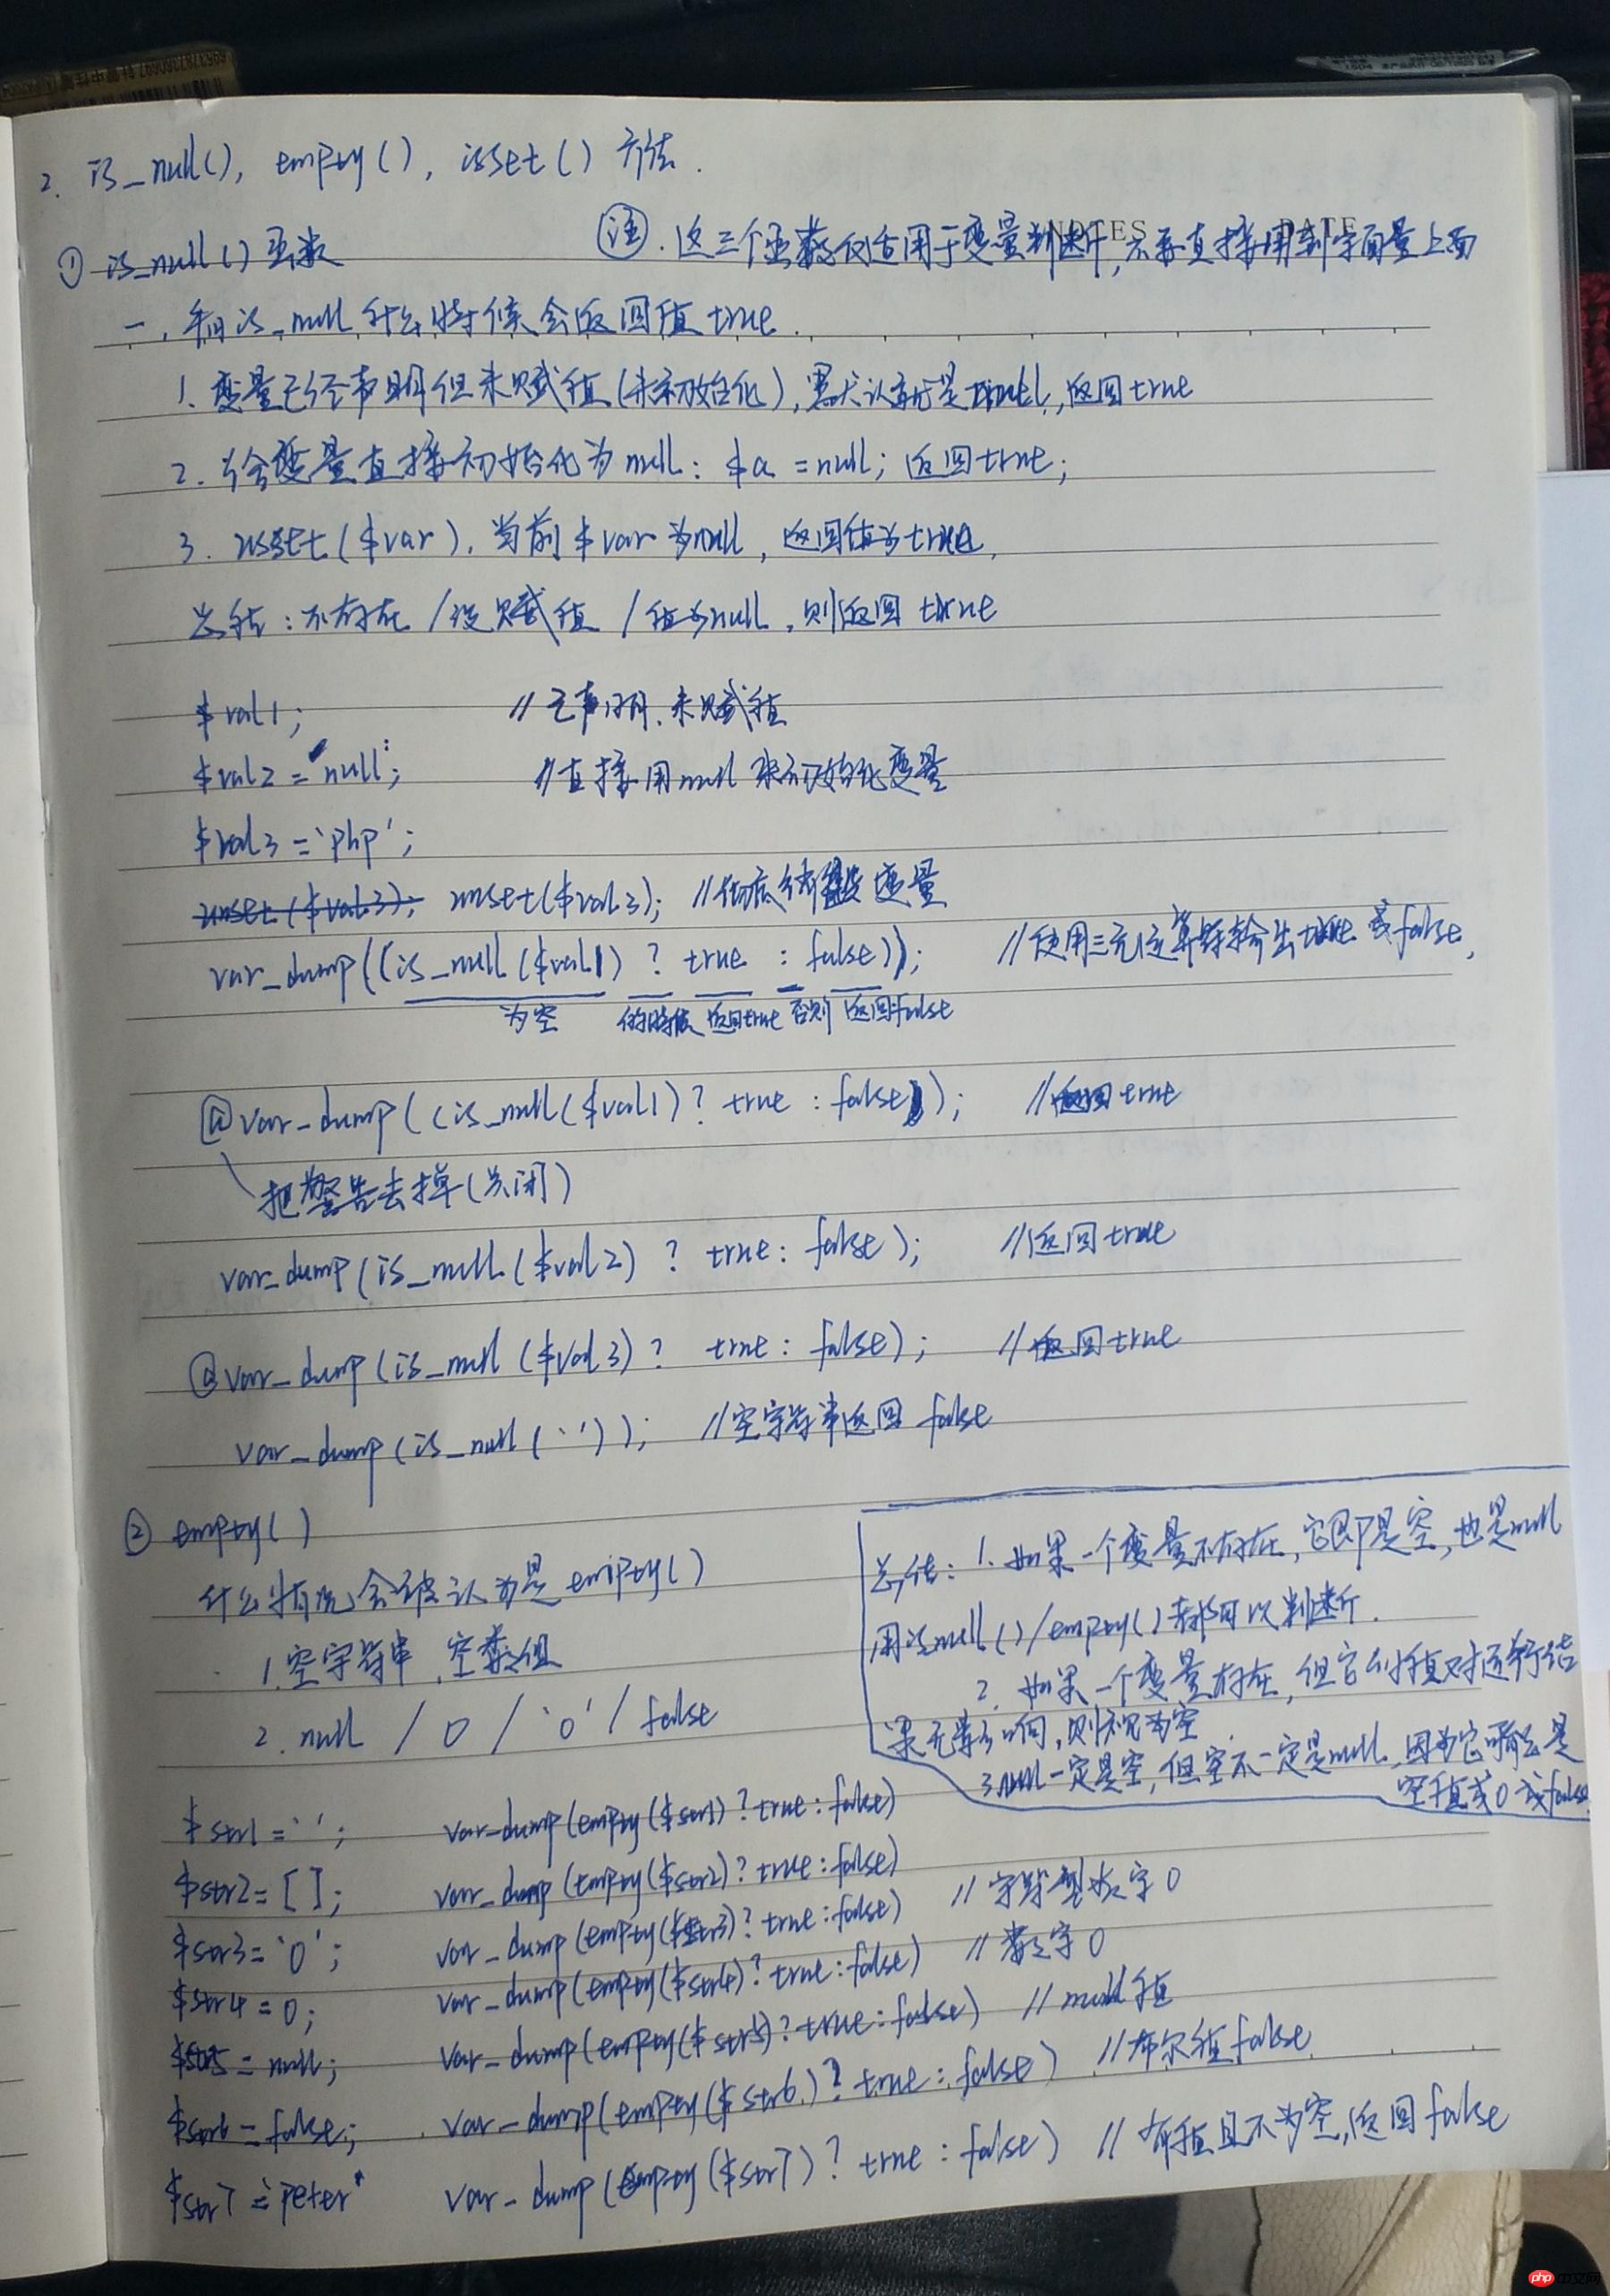 2. is_null(), empty(), isset() 方法.
NOTES DATE
① is_null() 函数 注. 这三个函数仅适用于变量判断,不要直接用到字面量上面
一, 利用is_null 什么时候会返回值true.
1. 变量已经声明但未赋值(未初始化),默认就是null, 返回true
2. 给变量直接初始化为null: $a =null; 返回true;
3. unset($var), 当前$var为null, 返回值为true.
总结: 不存在/没赋值/值为null,则返回true
$val1; //已声明,未赋值
$val2 = null; //直接用null来初始化变量
$val3 ='php';
unset($val3); unset($val3); //彻底销毁变量
var_dump((is_null($val1) ? true : false)); //使用三元运算符输出true或false,
为空 的时候 返回true 否则 返回false
@var_dump((is_null($val1)? true : false)); //返回true
把警告去掉(关闭)
var_dump(is_null($val2) ? true: false); //返回true
@var_dump(is_null($val3)? true: false); //返回true
var_dump(is_null('')); //空字符串返回false
② empty()
什么情况会被认为是empty()
1.空字符串,空数组
2. null / 0 / '0' / false
总结: 1. 如果一个变量不存在,它即是空,也是null
用isnull()/empty()都可以判断.
2. 如果一个变量存在,但它的值对运行结
果无影响,则视为空.
3.null一定是空,但空不一定是null,因为它可能是
空值或0或false.
$str1 = ''; var_dump(empty($str1)?true:false)
$str2= []; var_dump(empty($str2)?true:false)
$str3='0'; var_dump(empty($str3)?true:false) //字符型数字0
$str4=0; var_dump(empty($str4)?true:false) //数字0
$str5 = null; var_dump(empty($str5)?true:false) //null值
$str6 = false; var_dump(empty($str6)?true:false) //布尔值false
$str7='Peter' var_dump(empty($str7)? true : false) //有值且不为空,返回false
php 中文网